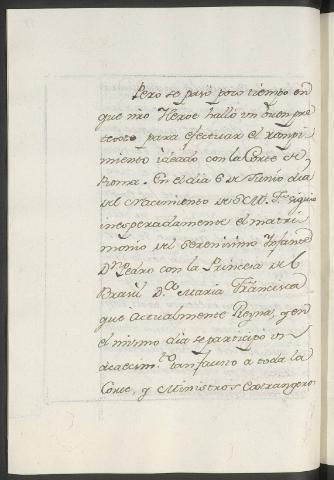 Pero se pasò poco tiempo en
que nrô Heroe hallò un buen pre
testo para efectuar el rompi
miento ideado con la Corte de
Roma. En el dia 6 de Junio dia
del Nacimiento de S.M. F. siguio
inesperadamente el matri
monio del Serenissimo Infante
Dn Pedro con la Princesa del
Brasil D.a Maria Francisca
que actualmente Reyna, y en
el mismo dia se participò un
acaecim.to tan fausto a toda la
Corte, y Ministros Extrangeros